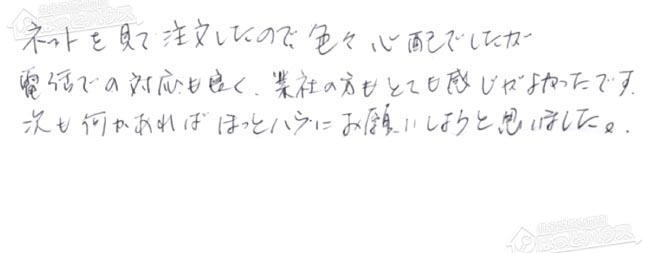 ネットを見て注文したので、色々心配でしたが
電話での対応も良く、業社の方もとても感じがよかったです。
次も何かあればほっとハウスにお願いしようと思いました。
ほっとハウス